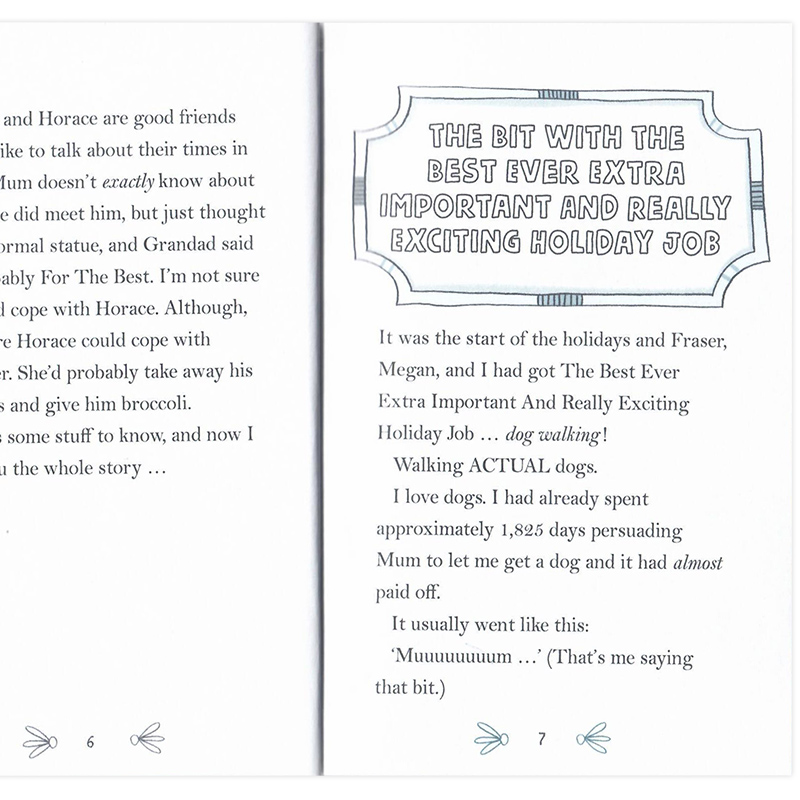 and Horace are good friends
ike to talk about their times in
Mum doesn't exactly know about
e did meet him, but just thought
ormal statue, and Grandad said
ably For The Best. I'm not sure
d cope with Horace. Although,
re Horace could cope with
er. She'd probably take away his
s and give him broccoli.
s some stuff to know, and now I
u the whole story …
6
THE BIT WITH THE
BEST EVER EXTRA
IMPORTANT AND REALLY
EXCITING HOLIDAY JOB
It was the start of the holidays and Fraser,
Megan, and I had got The Best Ever
Extra Important And Really Exciting
Holiday Job … dog walking!
Walking ACTUAL dogs.
I love dogs. I had already spent
approximately 1,825 days persuading
Mum to let me get a dog and it had almost
paid off.
It usually went like this:
‘Muuuuuuuum …’ (That's me saying
that bit.)
7